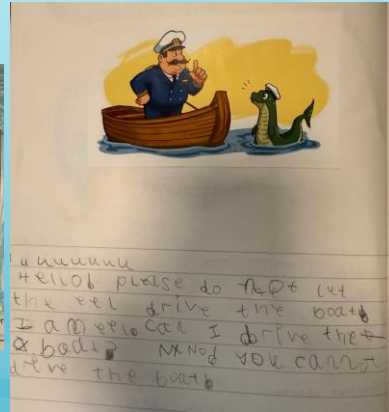 uuuuuuu
Hello! please do not let
the eel drive the boat!
I am eel. Can I drive the
boat? No! you cannot
drive the boat!